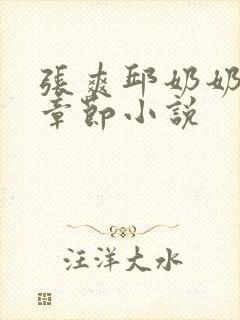 張爽邱奶奶
章節小說
汪洋大水